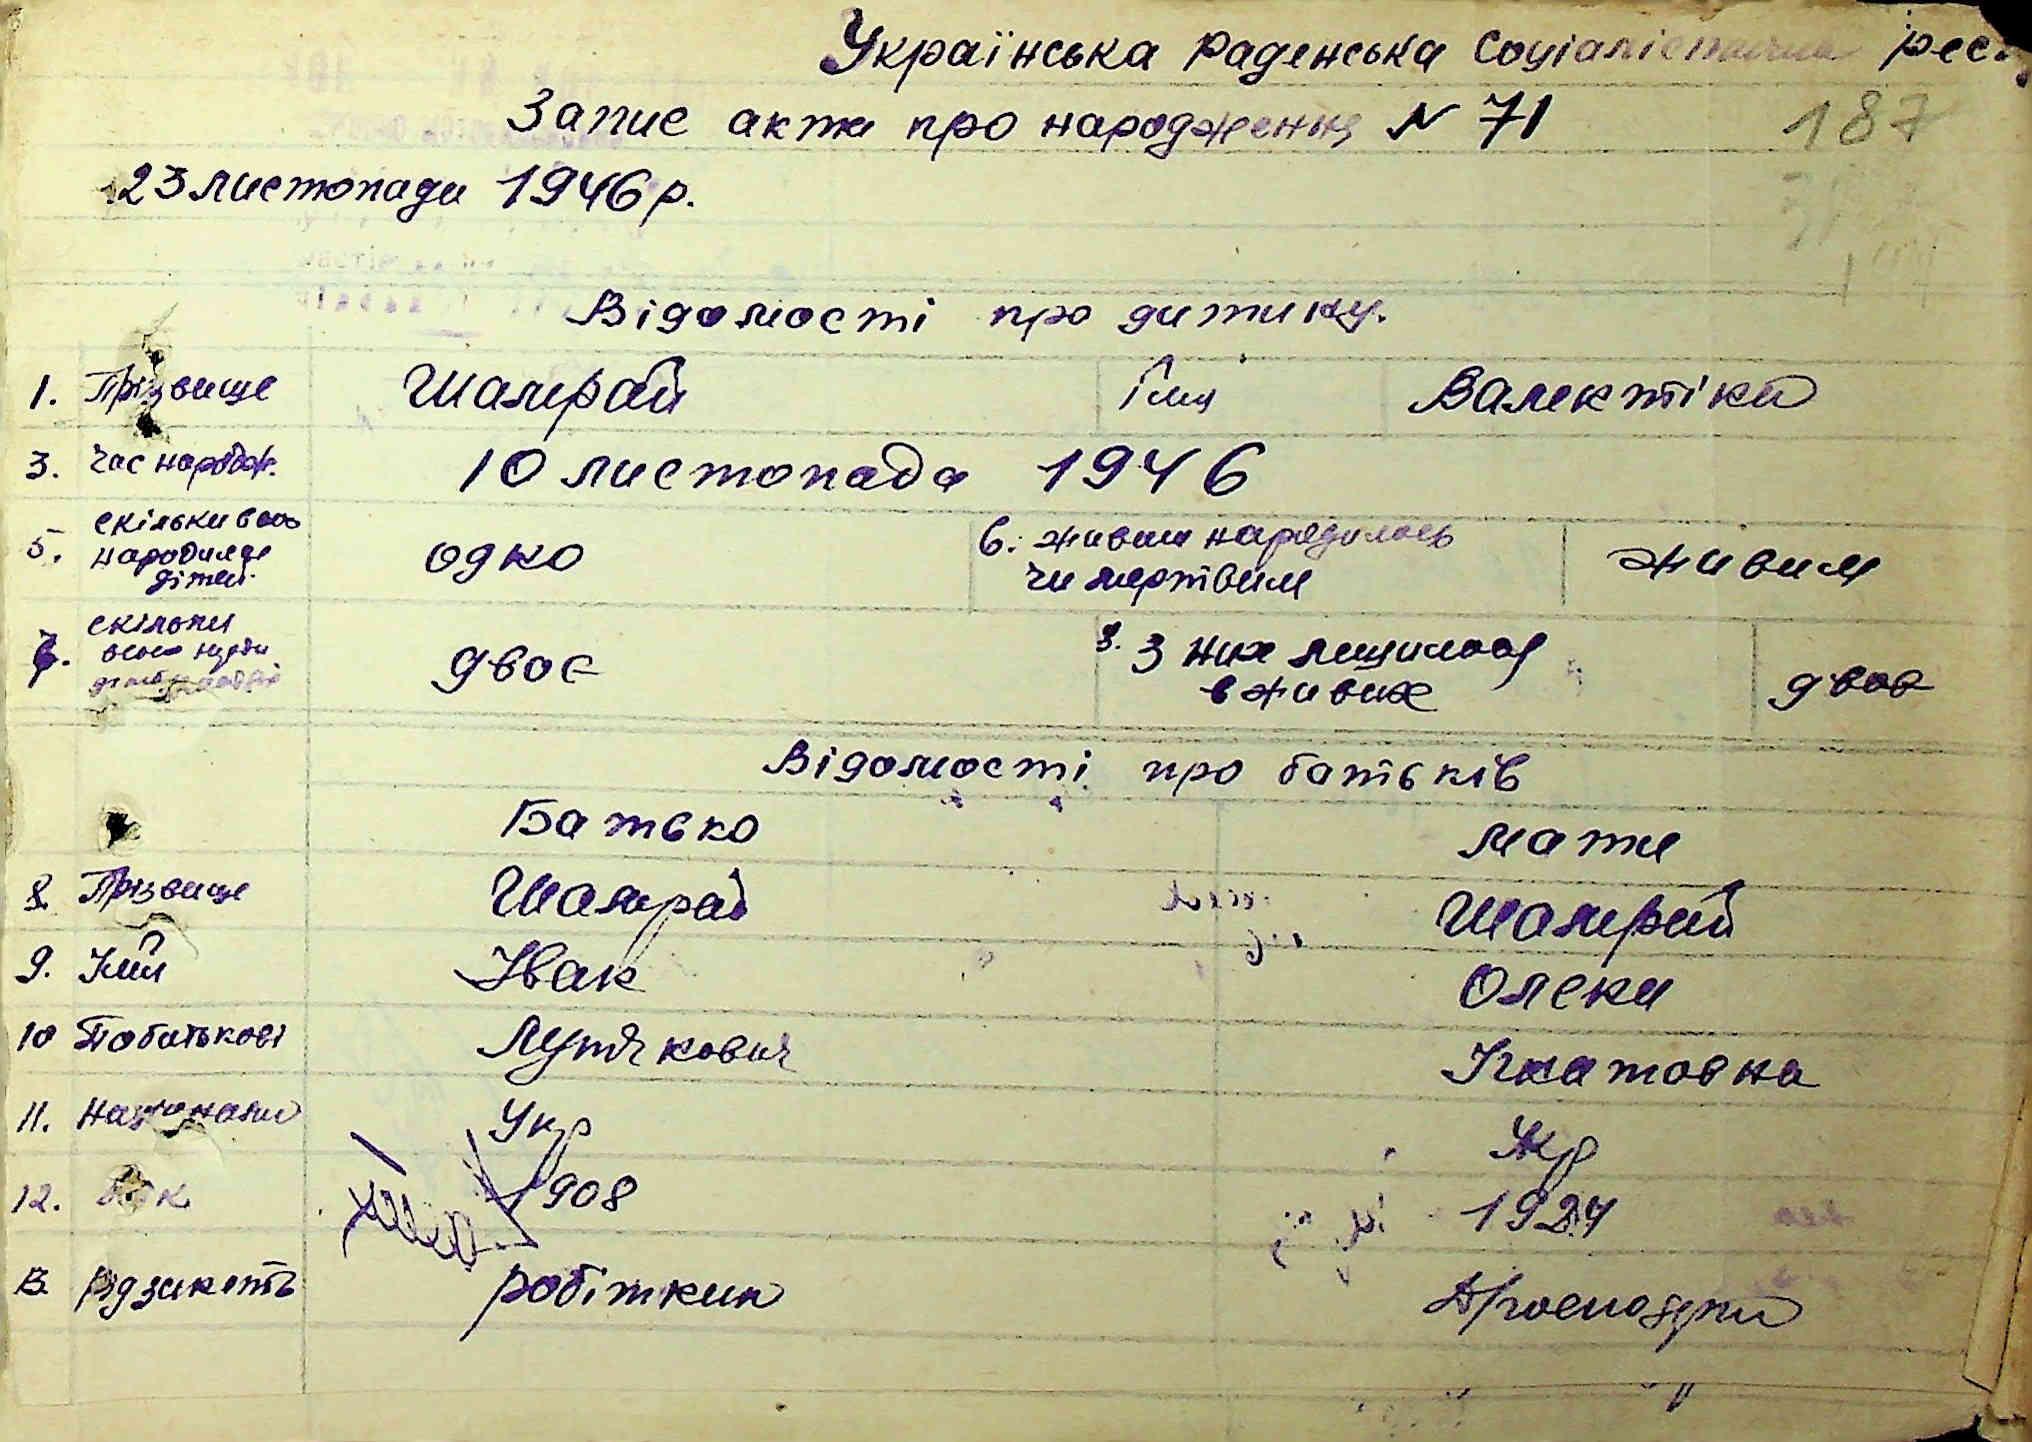 Українська Радянська Соціалістична рес
Запис акта про народження N 71
187
23 листопада 1946 р.
Відомості про дитину.
1. Прізвище Шамрай Імя Валентіна
3. Час народж. 10 листопада 1946
5. скільки всьо народилось дітей одно 6. живим народилось чи мертвим живим
7. скільки всього двоє 8. З них лишилося в живих двоє
Відомості про батьків
Батько мати
8. Прізвище Шамрай Шамрай
9. Імя Іван Олена
10 Побатькові Лутячкович Ігнатовна
11. Націонал Укр Укр
12. Рік 1908 1924
13. робітник Домогосподарка